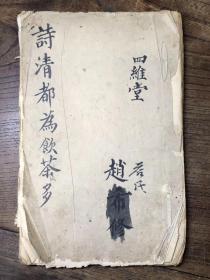 詩清都為飲茶多
四維堂
趙布修